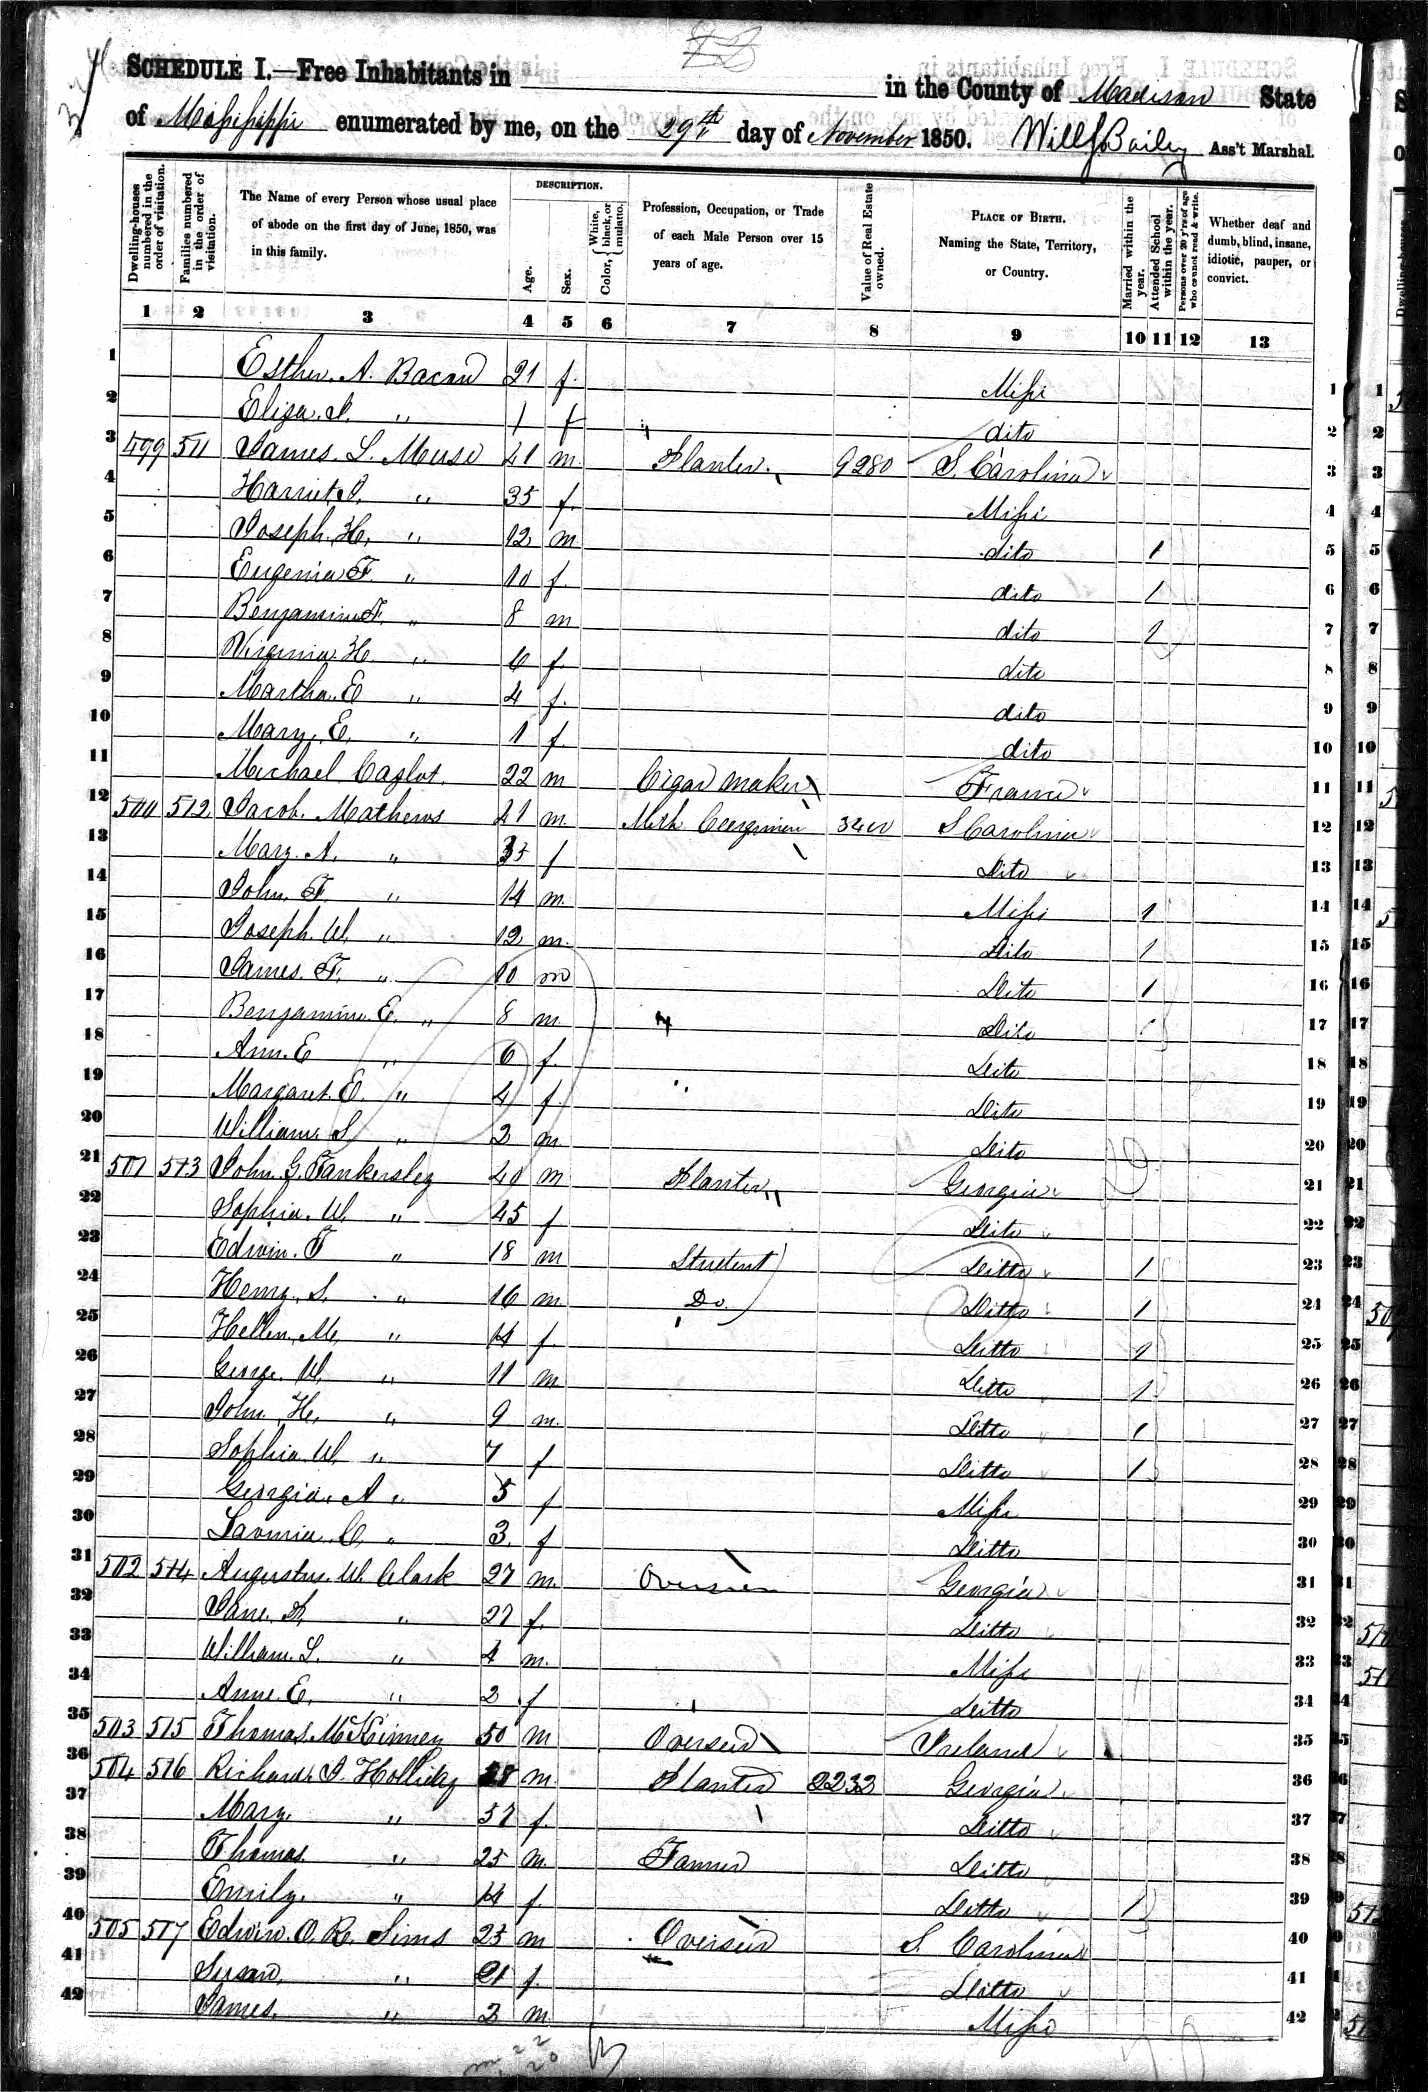 SCHEDULE I.—Free Inhabitants in in the County of Madison State
of Missisippi enumerated by me, on the 29th day of November 1850. Ass't Marshal.
Dwelling-houses numbered in the order of visitation.
Families numbered in the order of visitation.
The Name of every Person whose usual place of abode on the first day of June, 1850, was in this family.
DESCRIPTION.
Age.
Sex.
Color, { White, black, or mulatto.
Profession, Occupation, or Trade of each Male Person over 15 years of age.
Value of Real Estate owned.
PLACE OF BIRTH. Naming the State, Territory, or Country.
Married within the year.
Attended School within the year.
Persons over 20 y'rs of age who cannot read & write.
Whether deaf and dumb, blind, insane, idiotic, pauper, or convict.
1 2 3 4 5 6 7 8 9 10 11 12 13
1 Esther A. Bacon 21 f. Missi 1
2 Eliza " 1 f dito 2
3 499 511 James L. Muse 41 m. Planter 9280 S. Carolina 3
4 Harriet " 35 f. Missi 4
5 Joseph H. " 12 m dito 1 5
6 Eugenia F. " 10 f. dito 1 6
7 Benjamin F. " 8 m dito 1 7
8 Virginia H. " 6 f. dito 8
9 Martha E " 4 f. dito 9
10 Mary E. " 1 f. dito 10
11 Michael 22 m Cigar Maker France 11
12 500 512 Jacob Mathews 41 m. Meth 3400 S Carolina 12
13 Mary A. " 35 f Dito 13
14 John F. " 14 m. Missi 1 14
15 Joseph W. " 12 m. Dito 1 15
16 James F. " 10 m Dito 1 16
17 Benjamin E. " 8 m. Dito 17
18 Ann E " 6 f. Dito 18
19 Margaret E. " 4 f. Dito 19
20 William S " 2 m Dito 20
21 501 513 John G. Tankersley 40 m Planter Georgia 21
22 Sophia W. " 45 f Dito 22
23 Edwin T " 18 m Student Ditto 1 23
24 Henry S. " 16 m. Do. Ditto 1 24
25 Hellen M. " 14 f. Ditto 1 25
26 George W. " 11 m Ditto 1 26
27 John H. " 9 m. Ditto 1 27
28 Sophia W. " 7 f Ditto 1 28
29 Georgia A " 5 f Missi 29
30 Lavinia C. " 3 f Ditto 30
31 502 514 Augustus W. Clark 27 m. Overseer Georgia 31
32 Jane A. " 27 f. Ditto 32
33 William L. " 4 m. Missi 33
34 Anne E. " 2 f Ditto 34
35 503 515 Thomas McKinney 50 m Overseer Ireland 35
36 504 516 Richard J. Holliday m. Planter 2232 Georgia 36
37 Mary " 57 f. Ditto 37
38 Thomas " 25 m. Farmer Ditto 38
39 Emily " 14 f. Ditto 1 39
40 505 517 Edwin O. R. Sims 25 m Overseer S. Carolina 40
41 Susan " 21 f. Ditto 41
42 James " 2 m. Missi 42